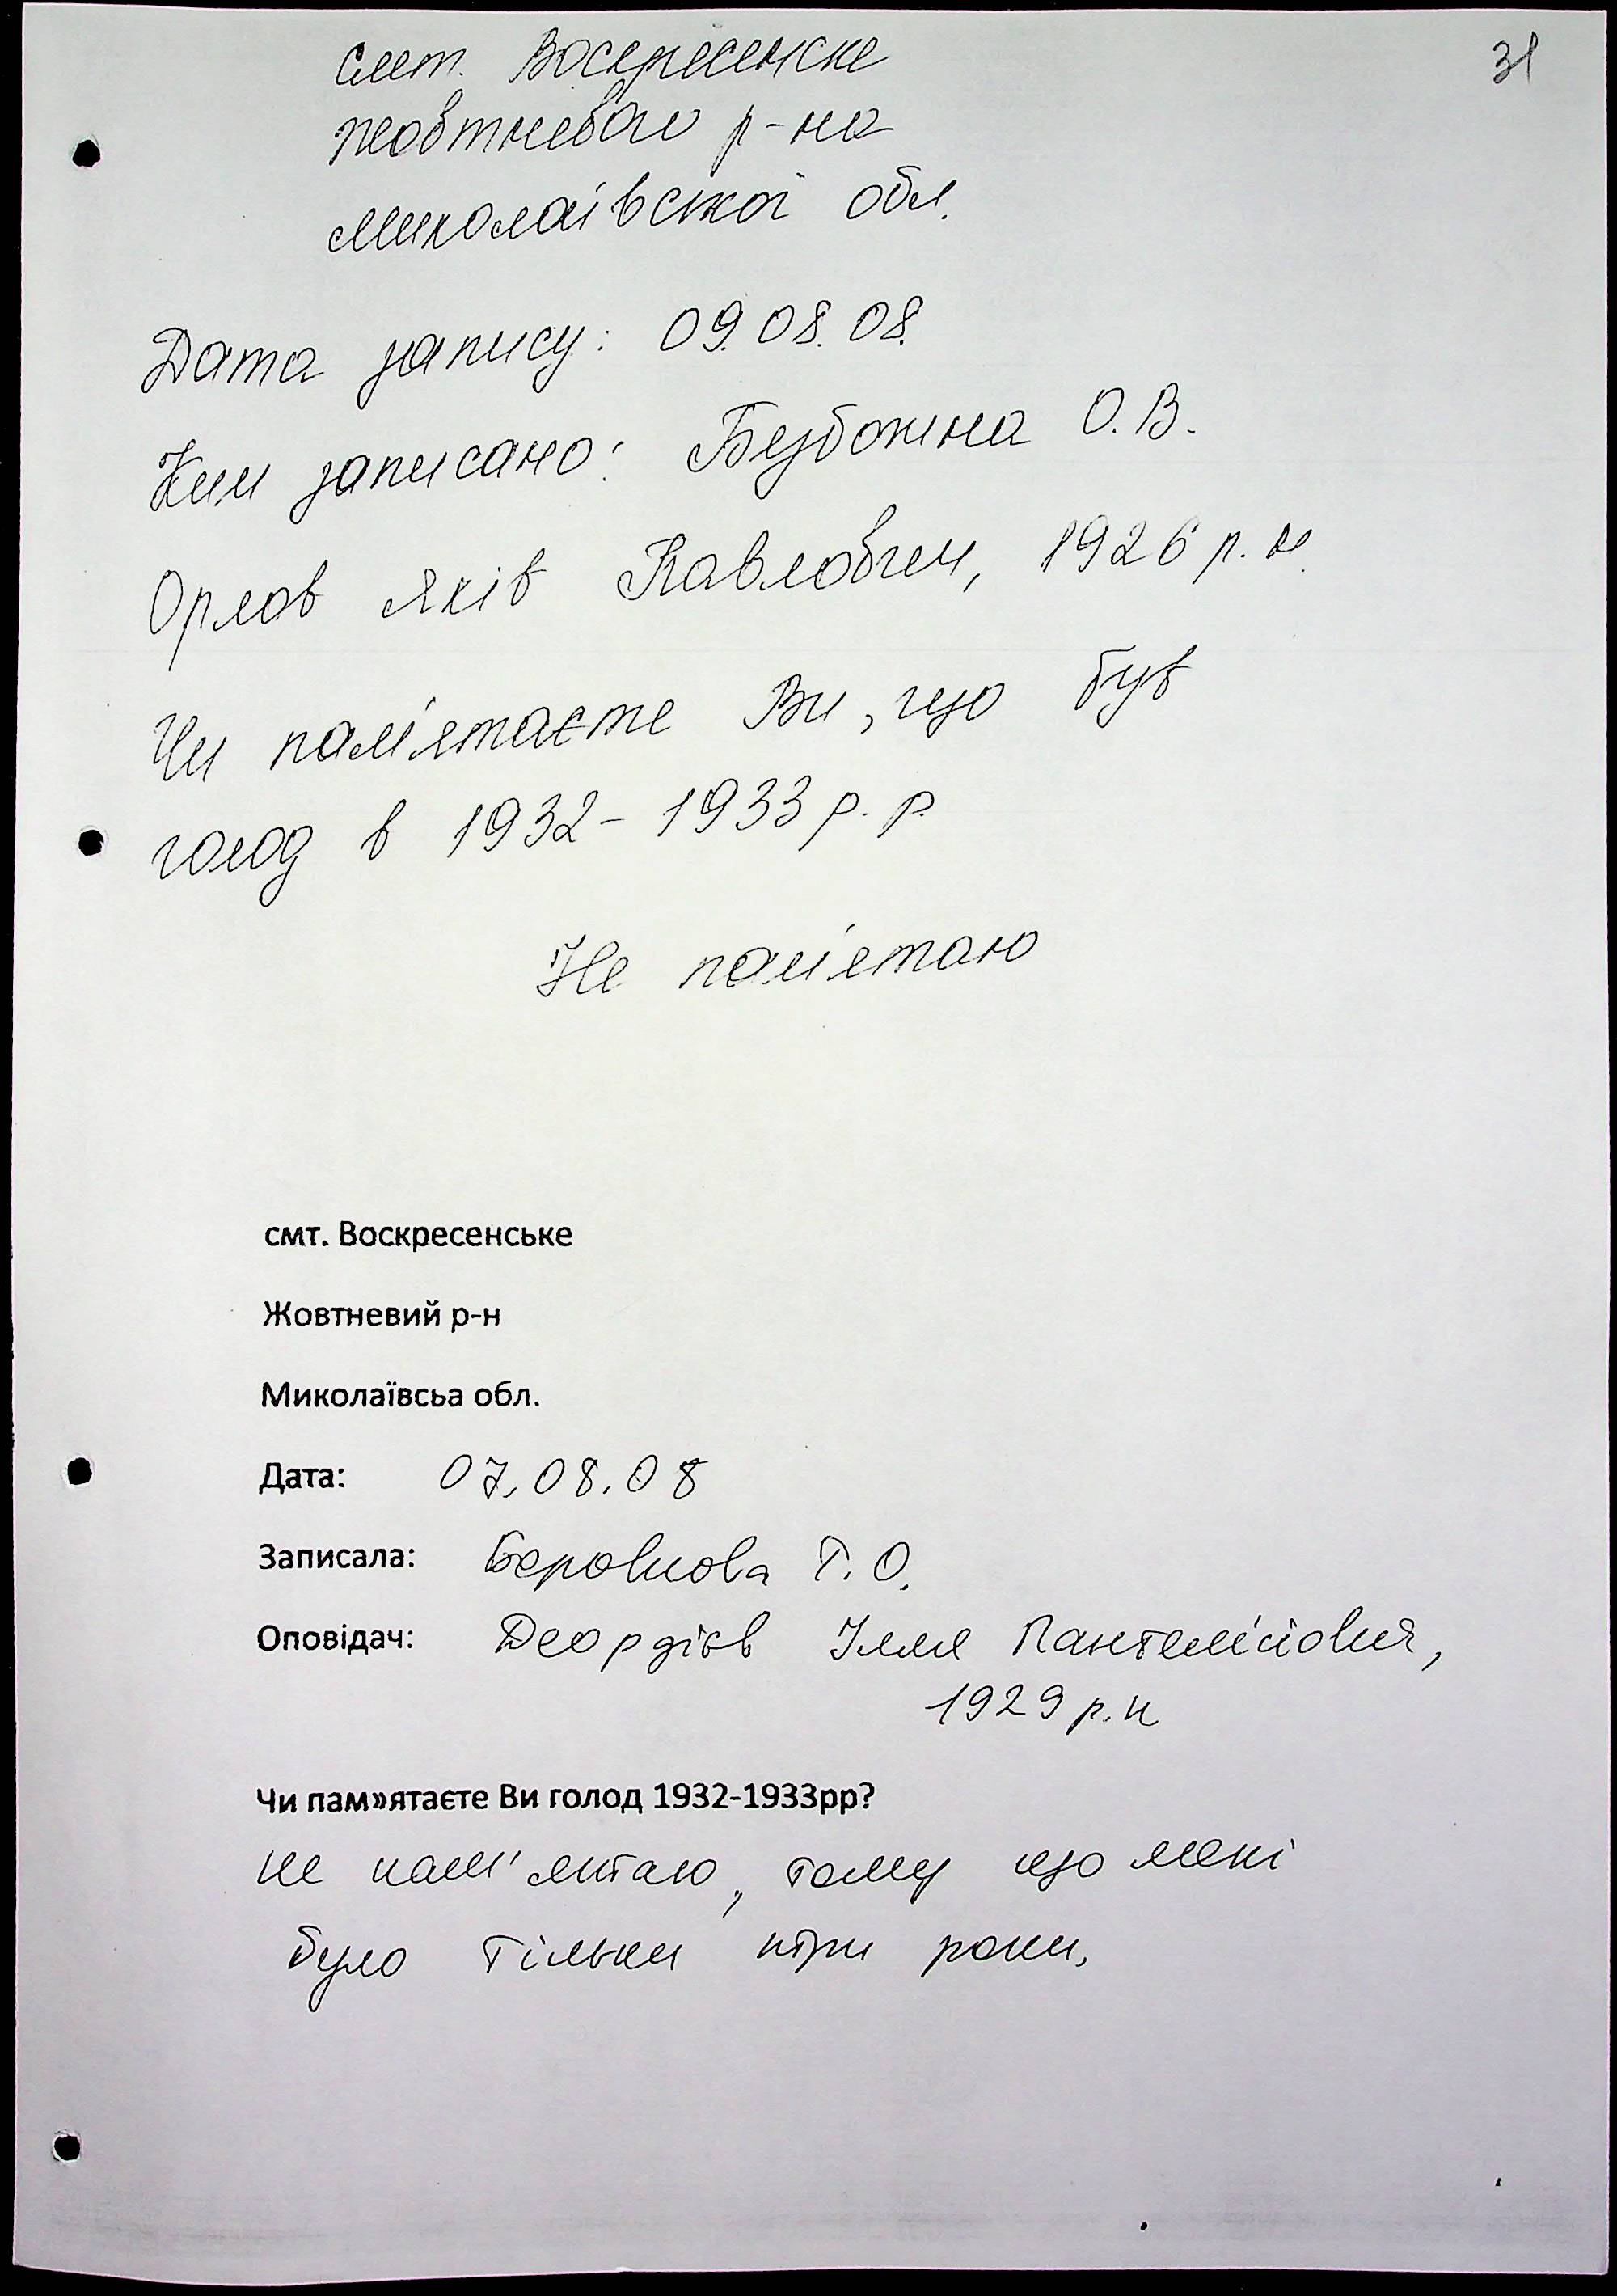 31
смт. Воскресенське
Жовтневого р-на
Миколаївської обл.
Дата запису: 09.08.08.
Ким записано: Безбожна О.В.
Орлов Яків Павлович, 1926 р.н.
Чи пам'ятаєте Ви, що був
голод в 1932-1933 р.р.
Не пам'ятаю
смт. Воскресенське
Жовтневий р-н
Миколаївсьа обл.
Дата: 07.08.08
Записала: Т.О.
Оповідач: Деордієв Ілля
1929 р.н
Чи пам»ятаєте Ви голод 1932-1933рр?
не пам'ятаю, тому що мені
було тільки три роки.